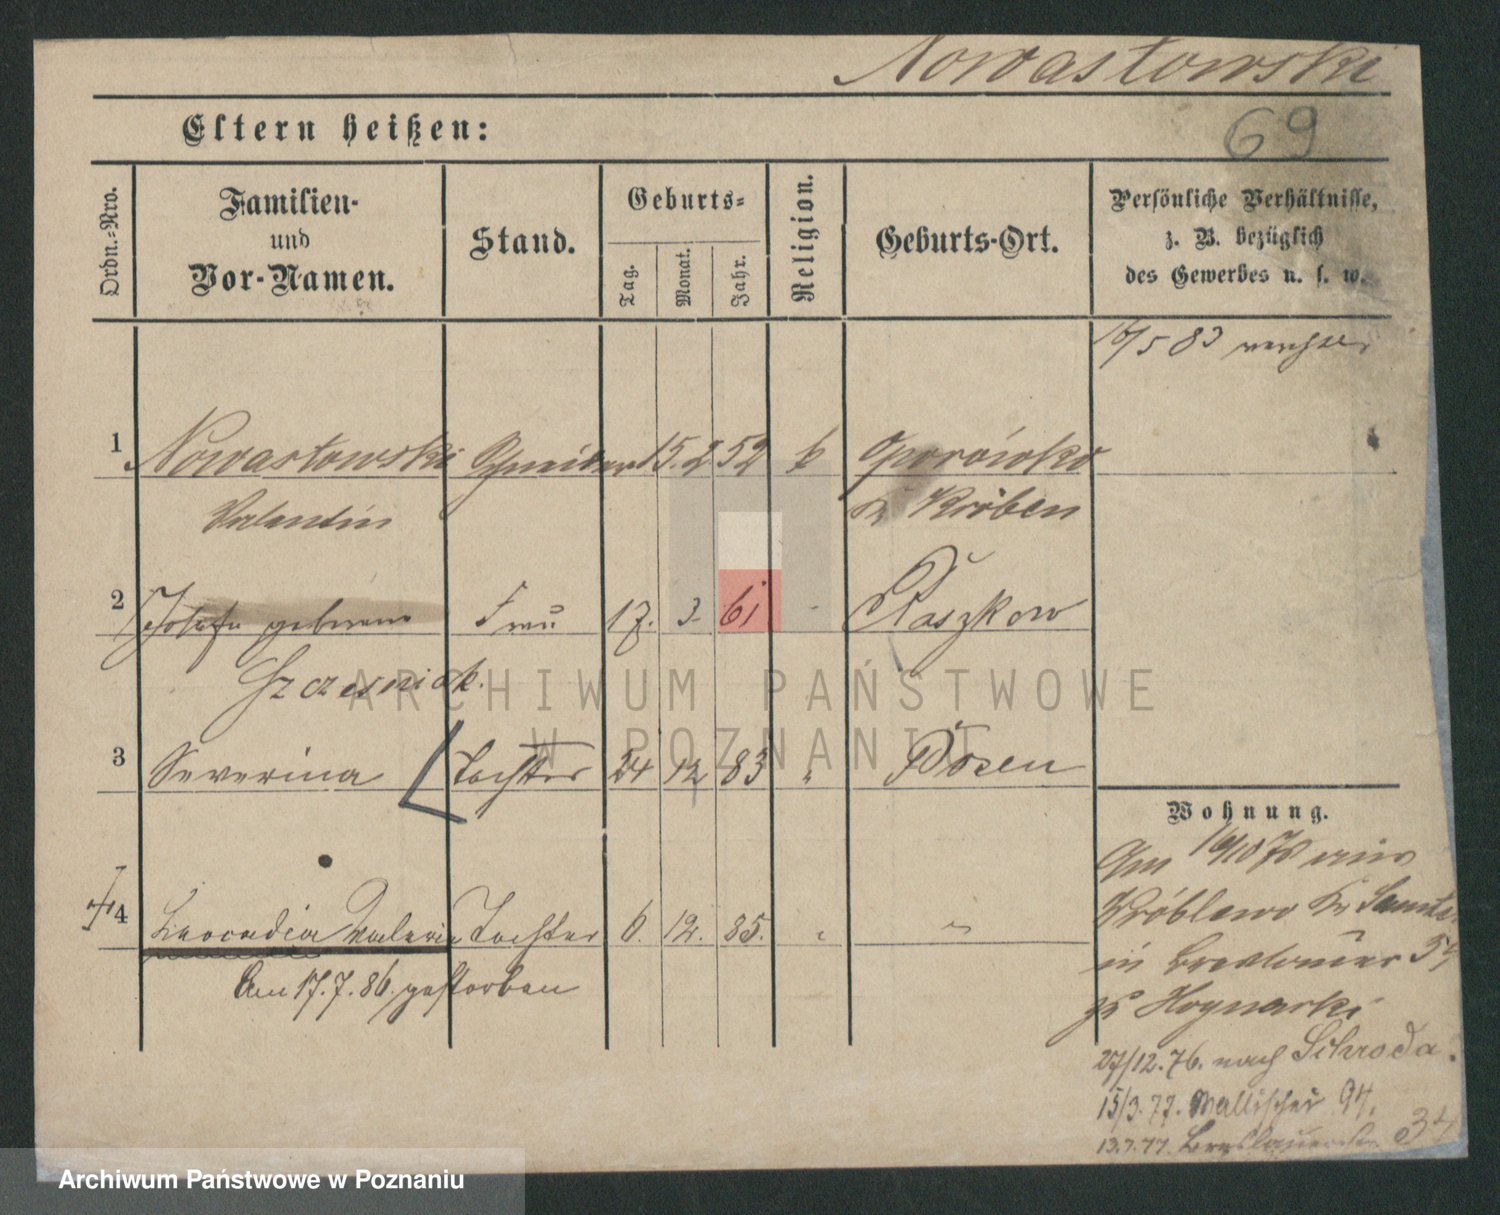 Nowastowski
69
Eltern heißen:
Ordn.-Nro.
Familien-
und
Vor-Namen.
Stand.
Geburts-
Tag.
Monat.
Jahr.
Religion.
Geburts-Ort.
Persönliche Verhältnisse,
z. B. bezüglich
des Gewerbes u. s. w.
16/5 83
1 Nowastowski Schneider 15. 2 52 k Oporówko
Valentin Kr Kröben
2 Josefa geborene Frau 17. 3. 61 - Raszkow
Szczesniak.
3 Severina Tochter 24 12 83 " Posen
4 Leocadia Valeria Tochter 6. 12. 85. " "
Am 17.7.86. gestorben
Wohnung.
Am 16/10 76 aus
Wróblewo Kr Samter
in Breslauer 34
zu
27/12.76. nach Schroda.
15/3.77. Wallischei 94.
13.7.77. Breslauerstr 34
ARCHIWUM PAŃSTWOWE
W POZNANIU
Archiwum Państwowe w Poznaniu